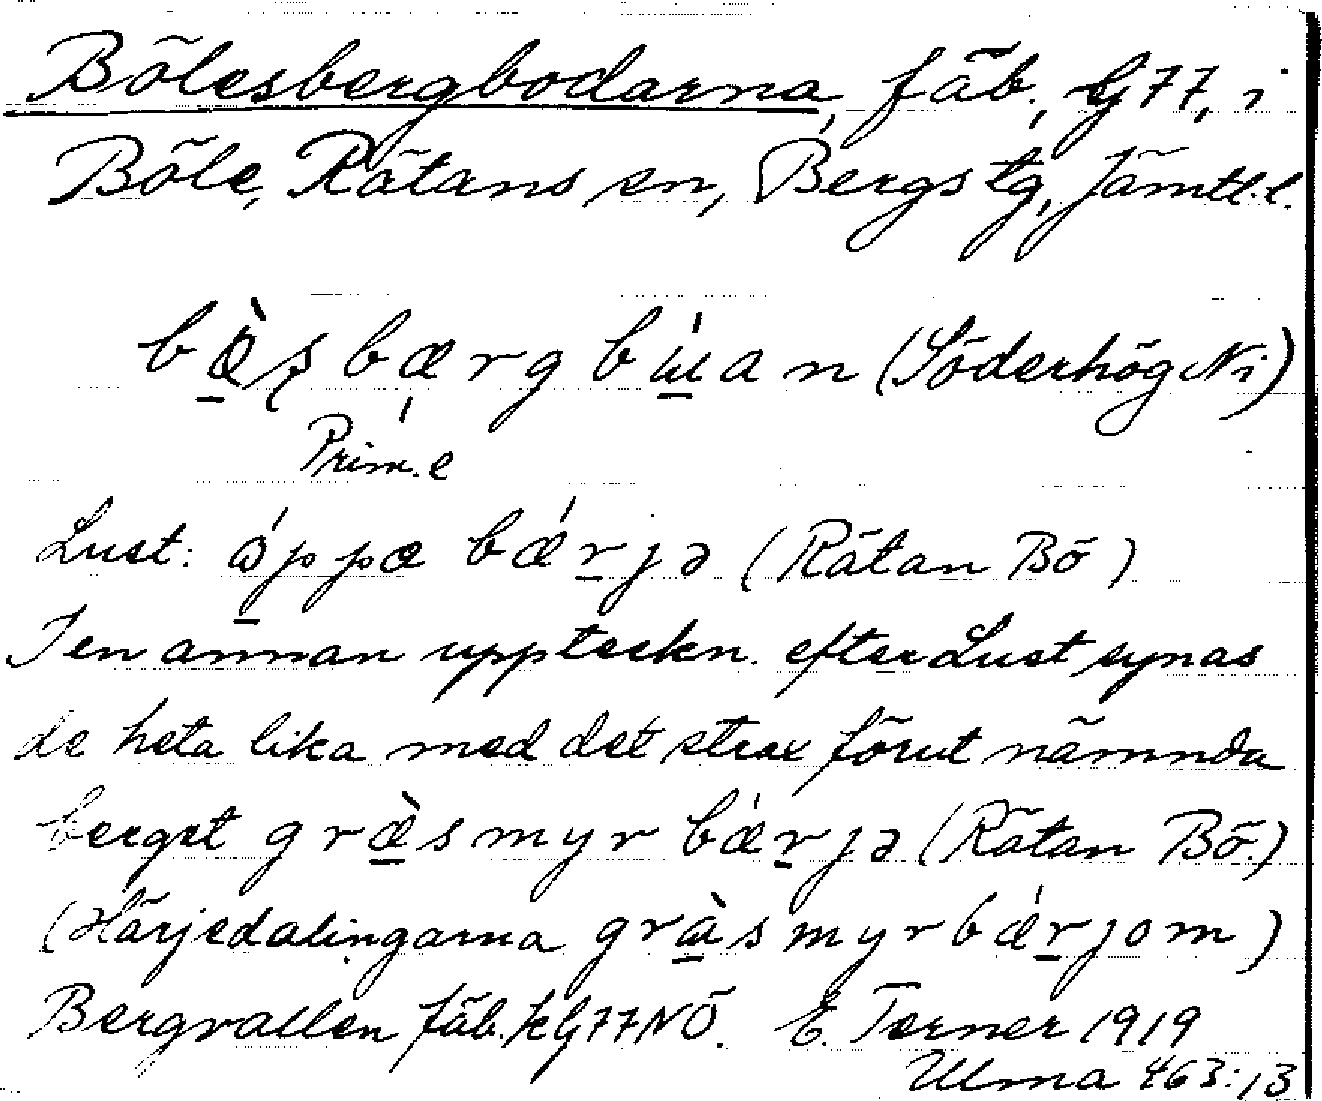 Bölesbergbodarna, fäb., G77, i
Böle, Rätans sn, Bergs tg, Jämtl.l.
bæ̀ʂbærgbɯ́an (Söderhög Ni)
Prim. e
Lust: ɔ́ppæ bǽrjə (Rätan Bö)
I en annan uppteckn. efter Lust synas
de heta lika med det strax förut nämnda
berget græ̀smyrbǽrjə (Rätan Bö.)
(Härjedalingarna grɯ̀smyrbǽrjom)
Bergvallen fäb. k G77NÖ. E. Terner 1919
Ulma 463:13